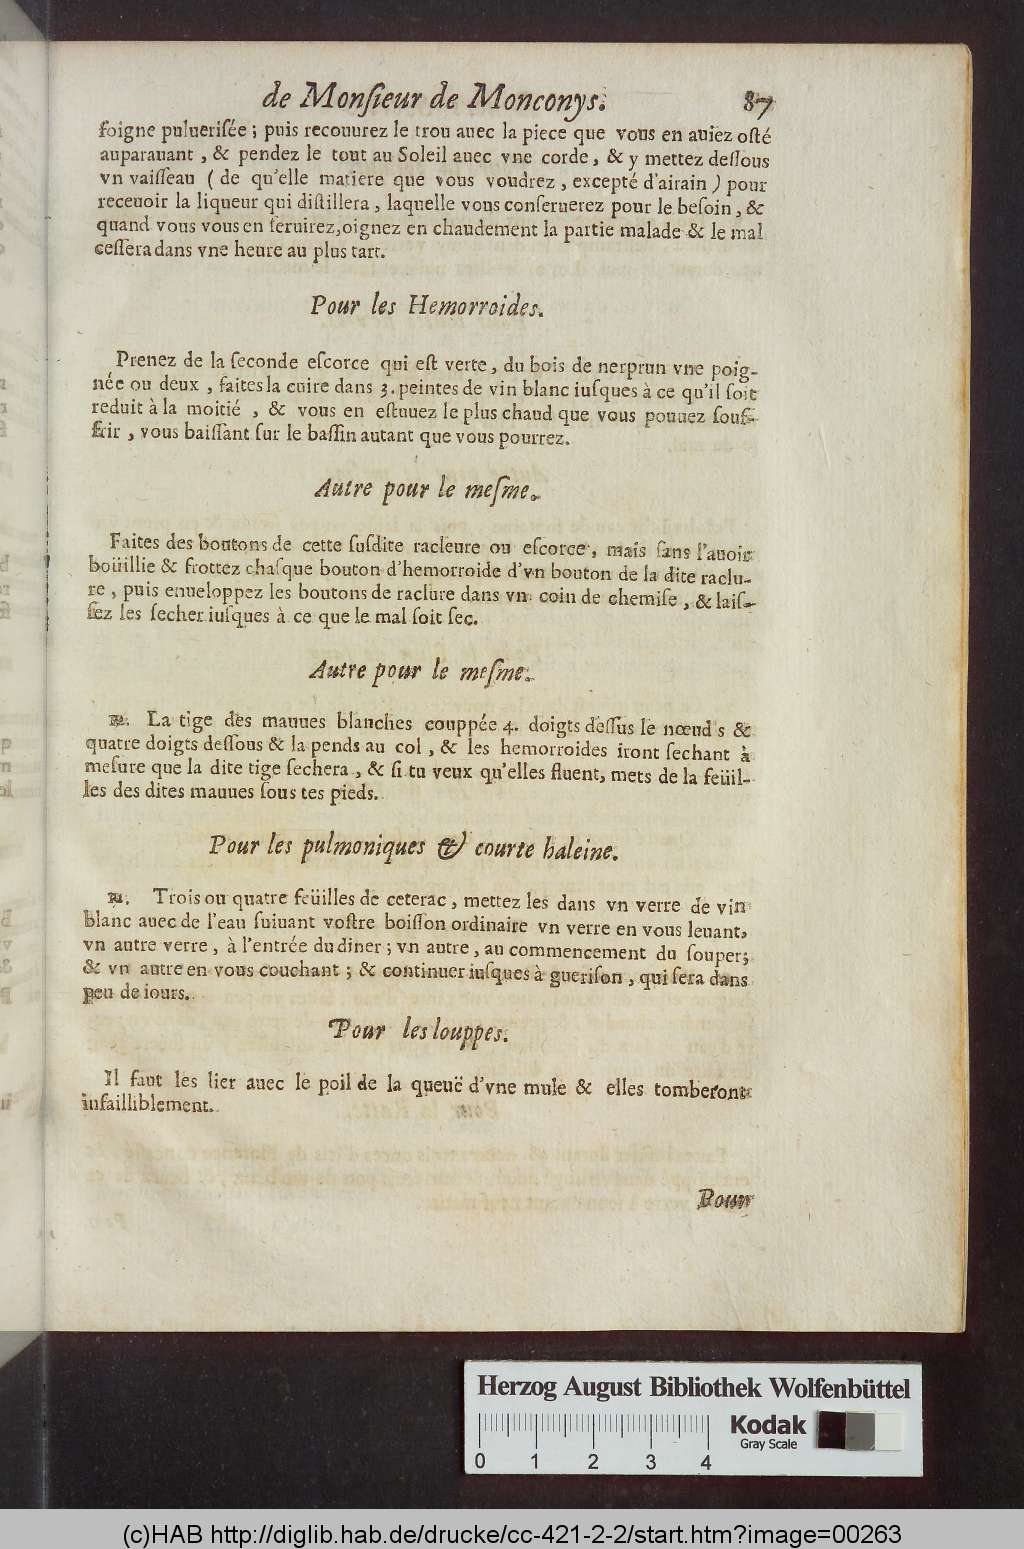 de Monſieur de Monconys. 87
ſoigne pulueriſée ; puis recouurez le trou auec la piece que vous en auiez oſté
auparauant , & pendez le tout au Soleil auec vne corde , & y mettez deſſous
vn vaiſſeau ( de qu'elle matiere que vous voudrez , excepté d'airain ) pour
receuoir la liqueur qui diſtillera , laquelle vous conſeruerez pour le beſoin , &
quand vous vous en ſeruirez, oignez en chaudement la partie malade & le mal
ceſſera dans vne heure au plus tart.
Pour les Hemorroides.
Prenez de la ſeconde eſcorce qui eſt verte , du bois de nerprun vne poig-
née ou deux , faites la cuire dans 3. peintes de vin blanc iuſques à ce qu'il ſoit
reduit à la moitié , & vous en eſtuuez le plus chaud que vous pouuez ſouf-
frir , vous baiſſant ſur le baſſin autant que vous pourrez.
Autre pour le meſme.
Faites des boutons de cette ſuſdite racleure ou eſcorce , mais ſans l'auoir
boüillie & frottez chaſque bouton d'hemorroide d'vn bouton de la dite raclu-
re , puis enueloppez les boutons de raclure dans vn coin de chemiſe , & laiſ-
ſez les ſecher iuſques à ce que le mal ſoit ſec.
Autre pour le meſme.
♃. La tige des mauues blanches couppée 4. doigts deſſus le nœud s &
quatre doigts deſſous & la pends au col , & les hemorroides iront ſechant à
meſure que la dite tige ſechera , & ſi tu veux qu'elles fluent, mets de la feüil-
les des dites mauues ſous tes pieds.
Pour les pulmoniques & courte haleine.
♃. Trois ou quatre feüilles de ceterac , mettez les dans vn verre de vin
blanc auec de l'eau ſuiuant voſtre boiſſon ordinaire vn verre en vous leuant,
vn autre verre , à l'entrée du diner ; vn autre , au commencement du ſouper;
& vn autre en vous couchant ; & continuer iuſques à gueriſon , qui ſera dans
peu de iours.
Pour les louppes.
Il faut les lier auec le poil de la queuë d'vne mule & elles tomberont
infailliblement.
Pour
Herzog August Bibliothek Wolfenbüttel
Kodak
Gray Scale
0 1 2 3 4
(c)HAB http://diglib.hab.de/drucke/cc-421-2-2/start.htm?image=00263